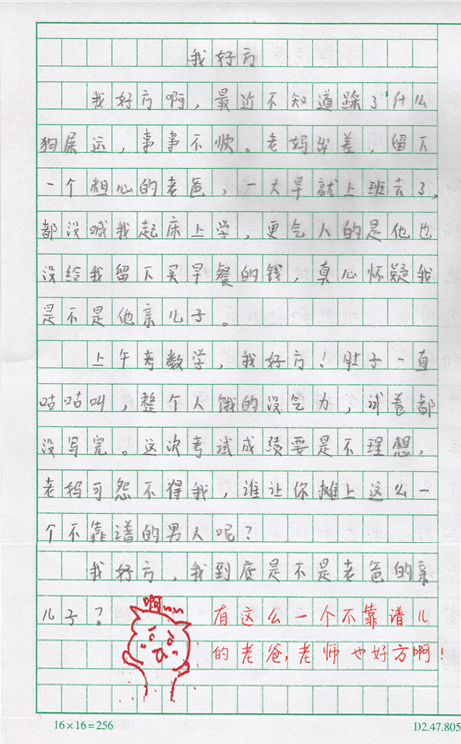 我好方
我好方啊，最近不知道踩了什么
狗屎运，事事不顺。老妈出差，留下
一个粗心的老爸，一大早就上班去了，
都没喊我起床上学，更气人的是他也
没给我留下买早餐的钱，真心怀疑我
是不是他亲儿子。
上午考数学，我好方！肚子一直
咕咕叫，整个人饿的没气力，试卷都
没写完。这次考试成绩要是不理想，
老妈可怨不得我，谁让你摊上这么一
个不靠谱的男人呢？
我好方，我到底是不是老爸的亲
儿子？
啊~~
有这么一个不靠谱儿
的老爸，老师也好方啊！
16×16=256
D2.47.805